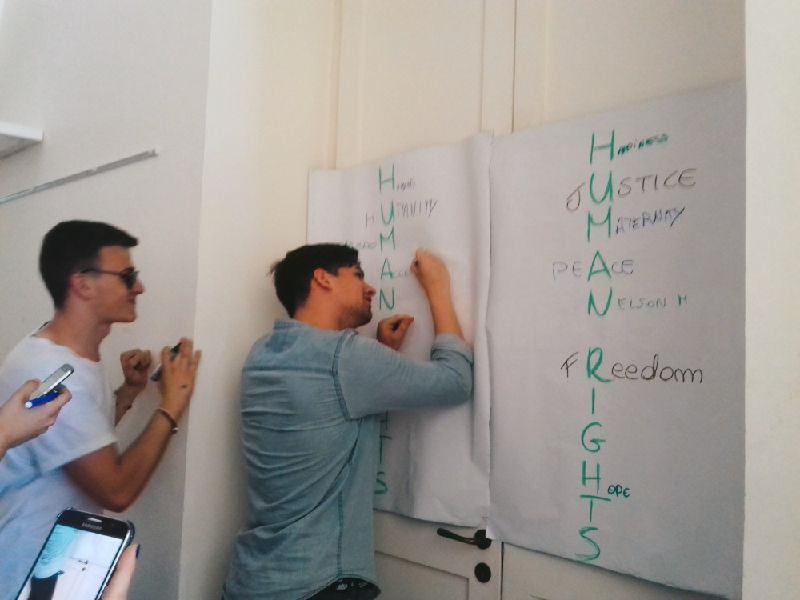 H
HUMANITY
M
A
N
T
S
HAPPINESS
JUSTICE
MATERNAY
PEACE
NELSON M
FReedom
I
G
HOPE
T
S
SAMSUNG